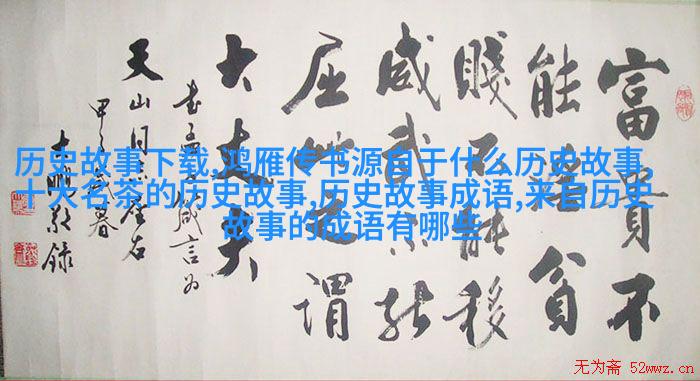 富貴不
能淫贫
賤不能移
威武不能
屈此之謂
大丈夫
天山同志
历史故事下载,鸿雁传书源自于什么历史故事,
十大名茶的历史故事,历史故事成语,来自历史
故事的成语有哪些
无为斋 52wwz.cn